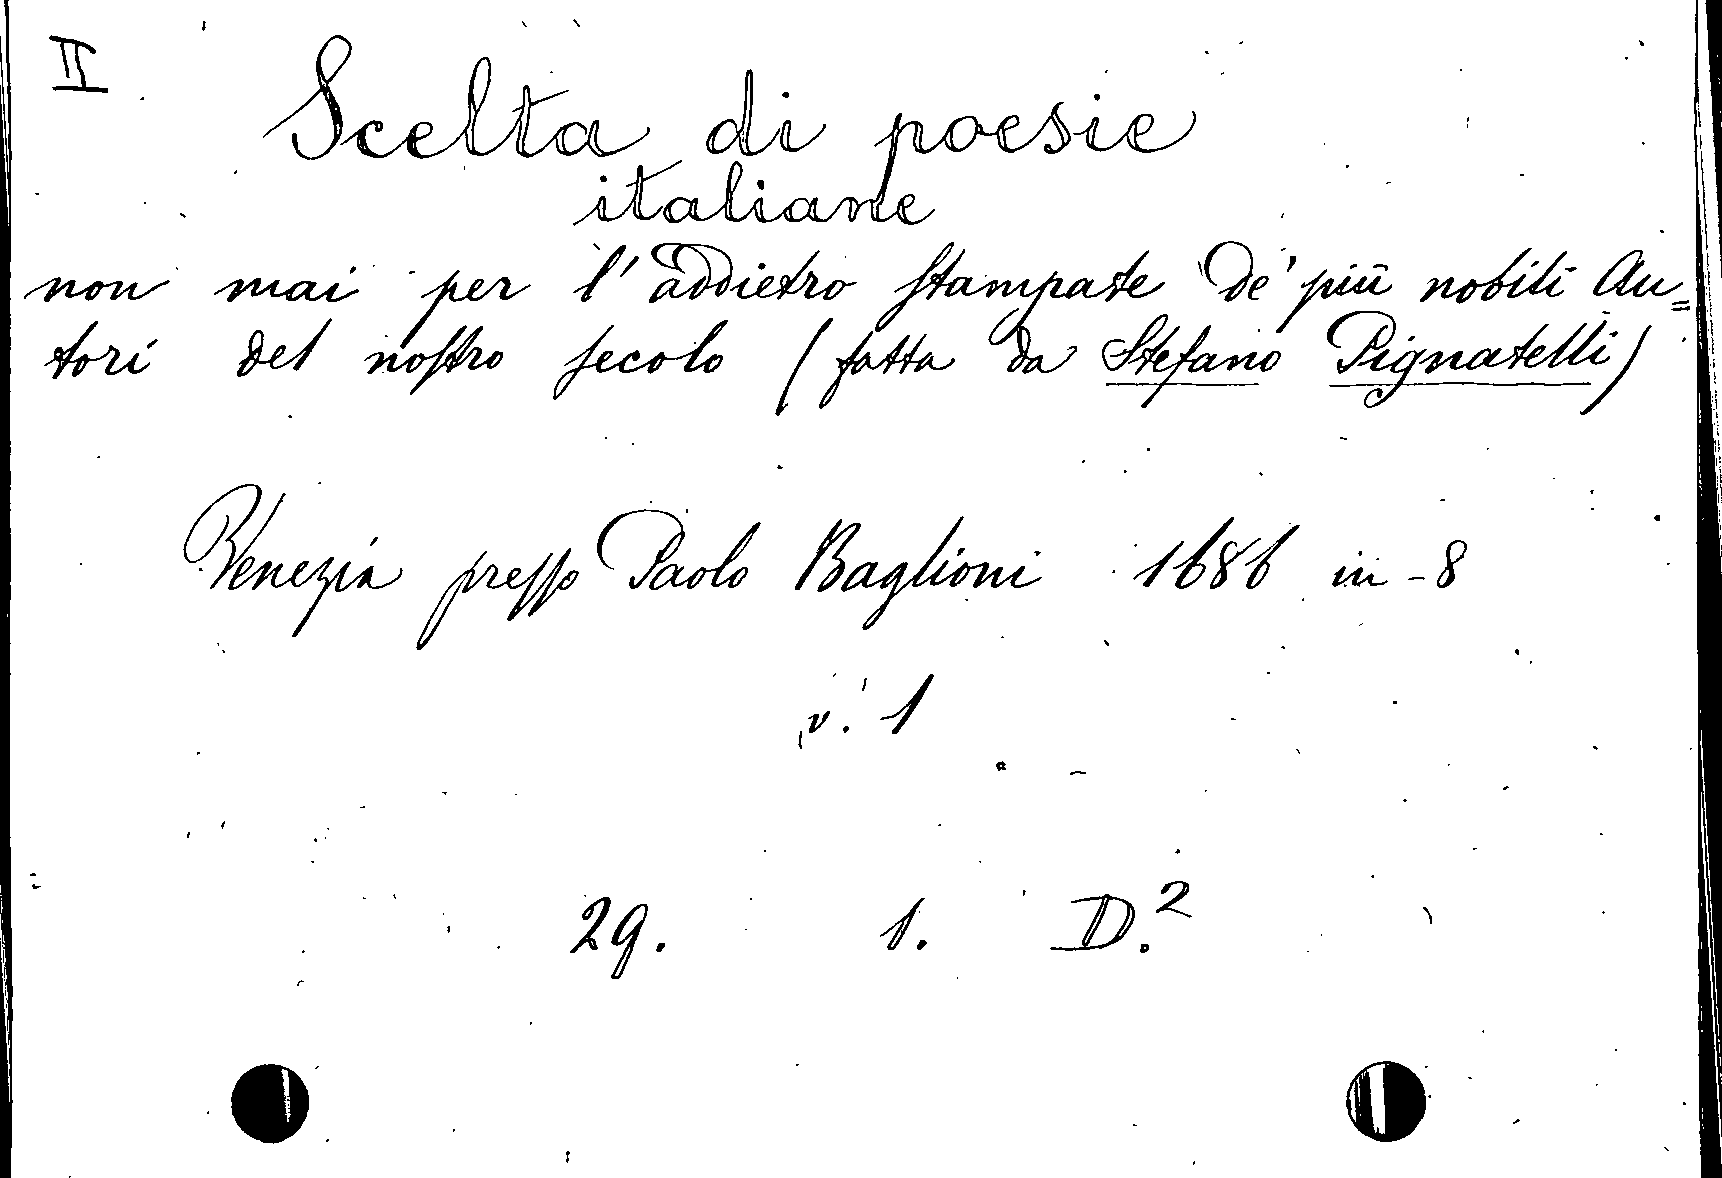 II
Scelta di poesie
italiane
non mai per l'addietro stampate de' più nobili Au=
tori del nostro secolo (fatta da Stefano Pignatelli)
Venezia presso Paolo Baglioni 1686 in-8
v. 1
29. 1. D.²